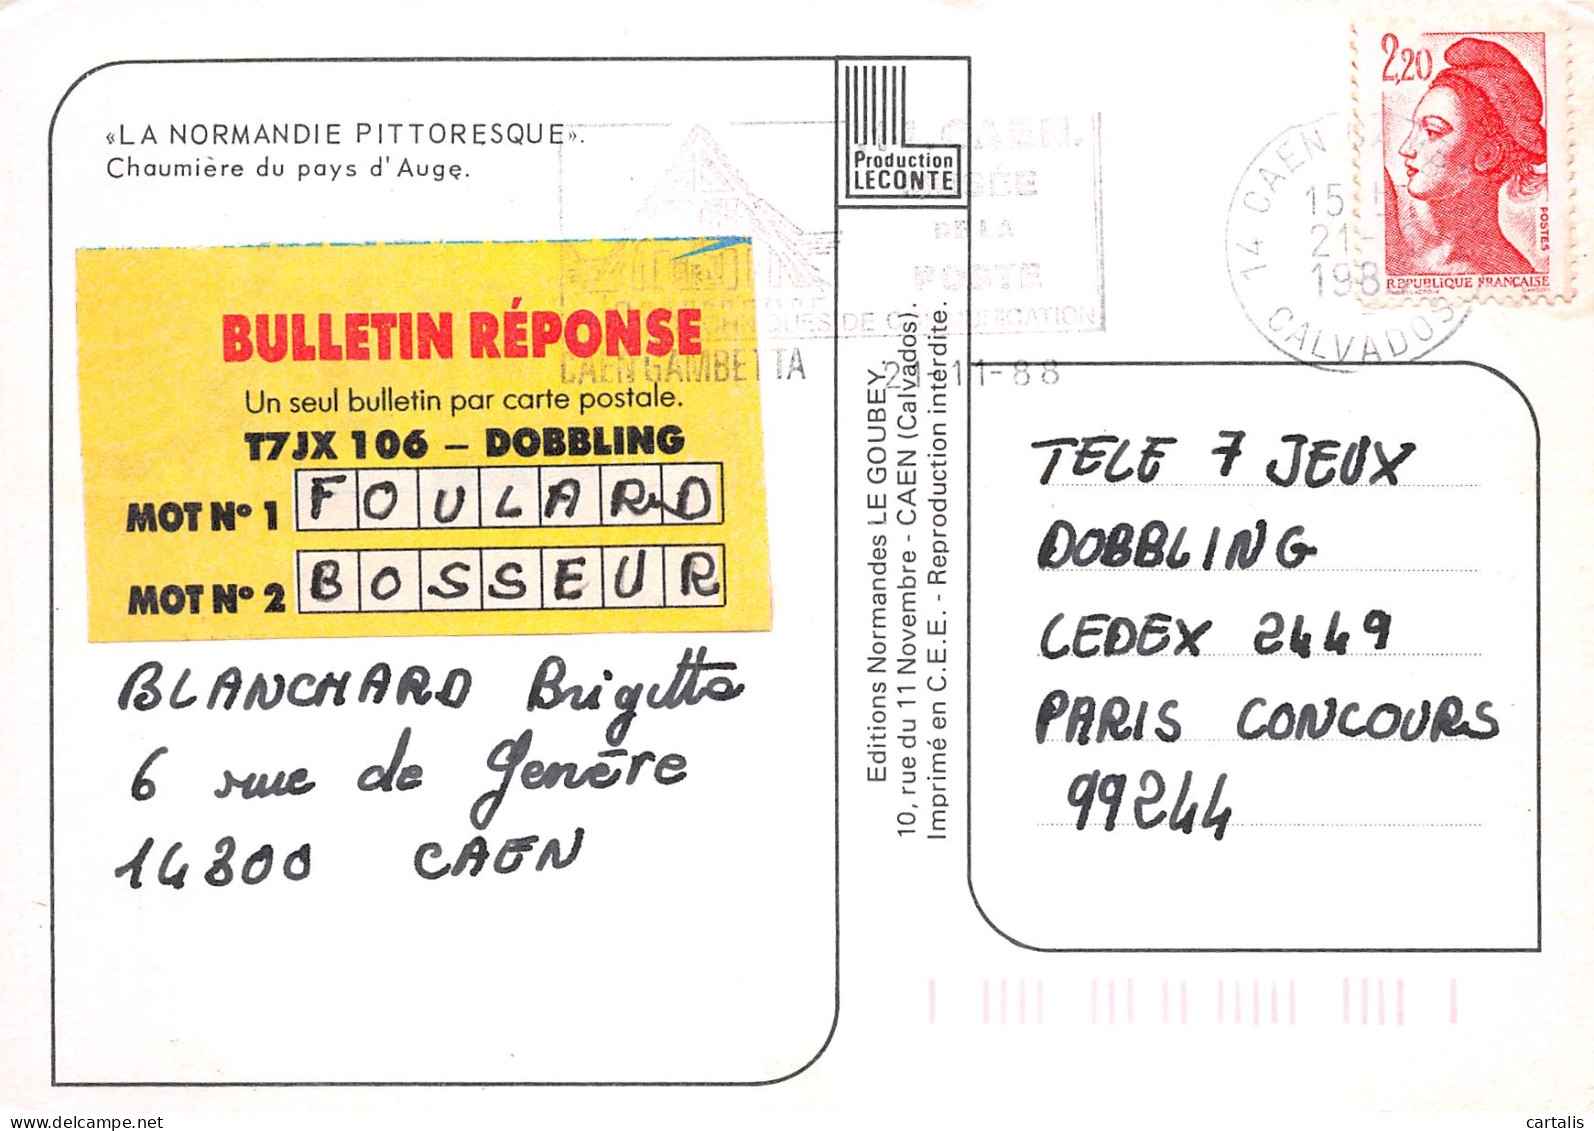 «LA NORMANDIE PITTORESQUE».
Chaumière du pays d'Auge.
Production
LECONTE
BULLETIN RÉPONSE
Un seul bulletin par carte postale.
T7JX 106 – DOBBLING
MOT Nº 1 FOULARD
MOT Nº 2 BOSSEUR
BLANCHARD Brigitte
6 rue de Genève
14300 CAEN
CAEN.
DE LA
POSTE
DE COMMUNICATION
CAEN GAMBETTA 21-11-88
Editions Normandes LE GOUBEY.
10, rue du 11 Novembre - CAEN (Calvados).
Imprimé en C.E.E. - Reproduction interdite.
2,20
POSTES
REPUBLIQUE FRANÇAISE
14 CAEN
15 H
21-
198
CALVADOS
TELE 7 JEUX
DOBBLING
CEDEX 2449
PARIS CONCOURS
99244
cartalis